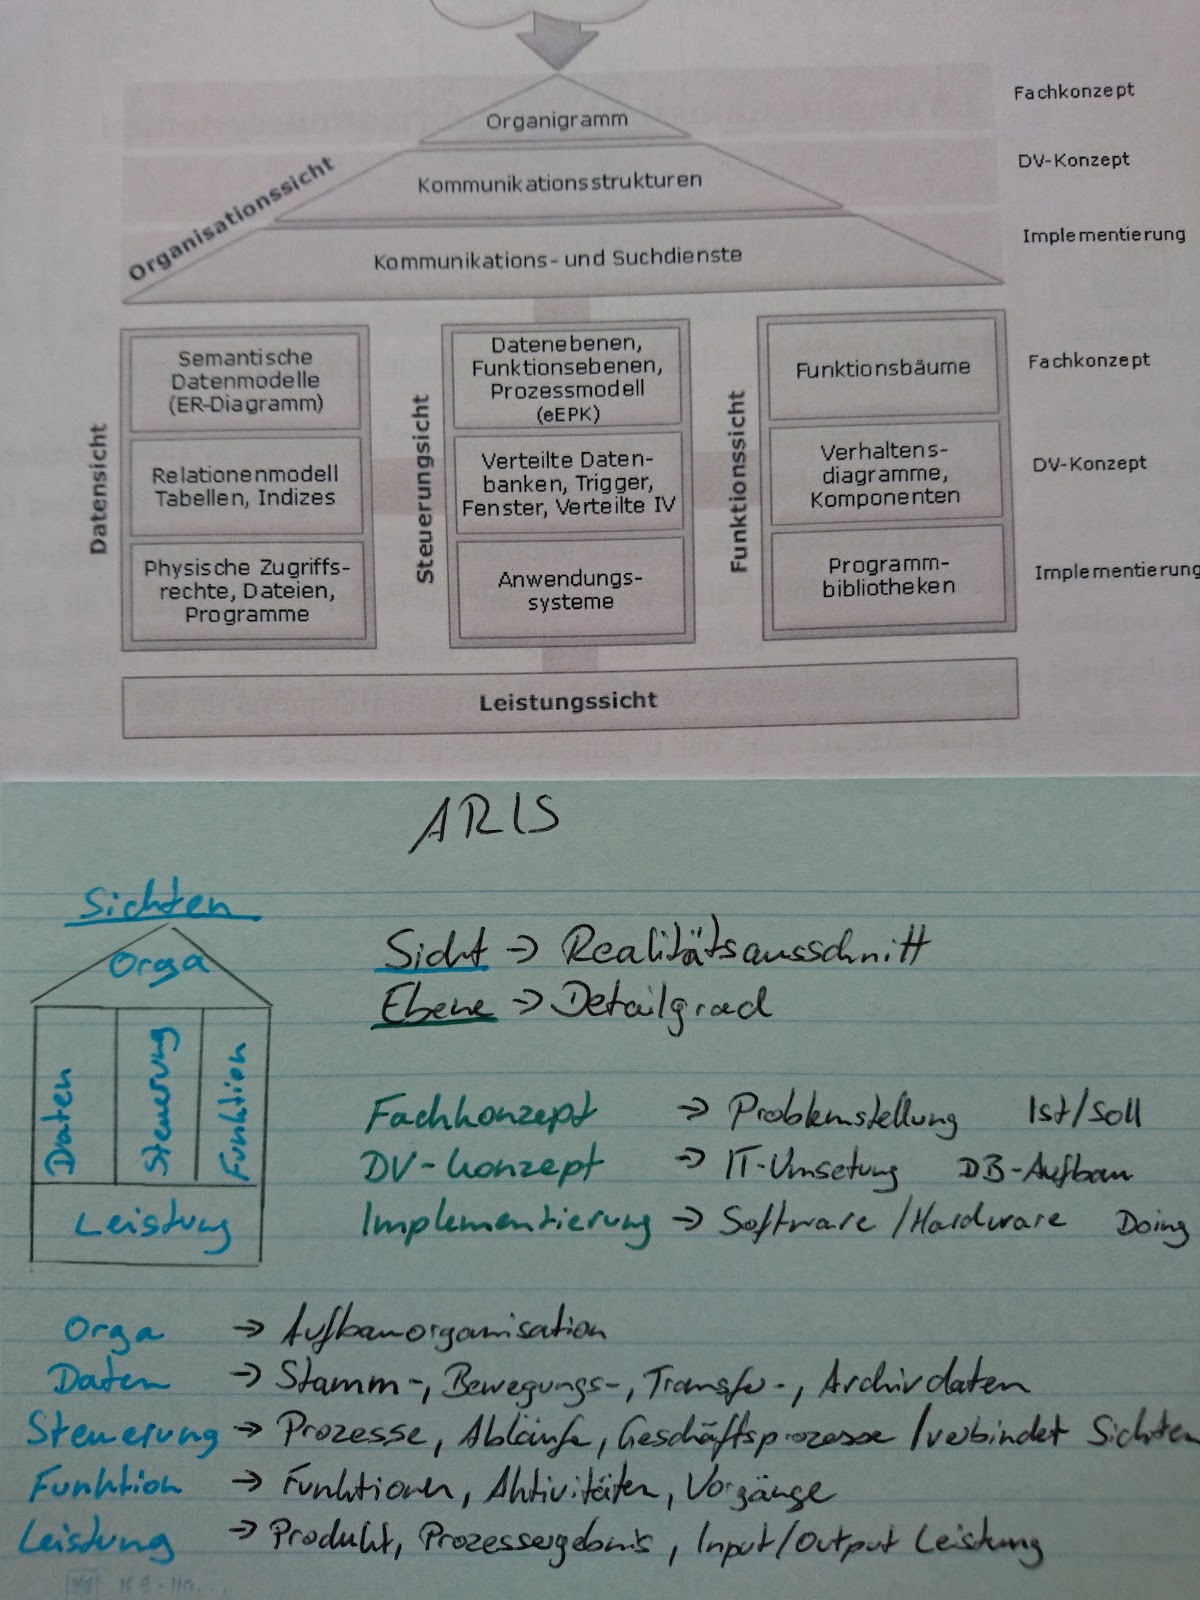 Organigramm
Kommunikationsstrukturen
Kommunikations- und Suchdienste
Organisationssicht
Fachkonzept
DV-Konzept
Implementierung
Datensicht
Semantische
Datenmodelle
(ER-Diagramm)
Relationenmodell
Tabellen, Indizes
Physische Zugriffs-
rechte, Dateien,
Programme
Steuerungsicht
Datenebenen,
Funktionsebenen,
Prozessmodell
(eEPK)
Verteilte Daten-
banken, Trigger,
Fenster, Verteilte IV
Anwendungs-
systeme
Funktionssicht
Funktionsbäume
Verhaltens-
diagramme,
Komponenten
Programm-
bibliotheken
Fachkonzept
DV-Konzept
Implementierung
Leistungssicht
ARIS
Sichten
Orga
Daten
Steuerung
Funktion
Leistung
Sicht → Realitätsausschnitt
Ebene → Detailgrad
Fachkonzept → Problemstellung Ist/Soll
DV-Konzept → IT-Umsetung DB-Aufbau
Implementierung → Software/Hardware Doing
Orga → Aufbauorganisation
Daten → Stamm-, Bewegungs-, Transfer-, Archivdaten
Steuerung → Prozesse, Abläufe, Geschäftsprozesse /verbindet Sichten
Funktion → Funktionen, Aktivitäten, Vorgänge
Leistung → Produkt, Prozessergebnis, Input/Output Leistung